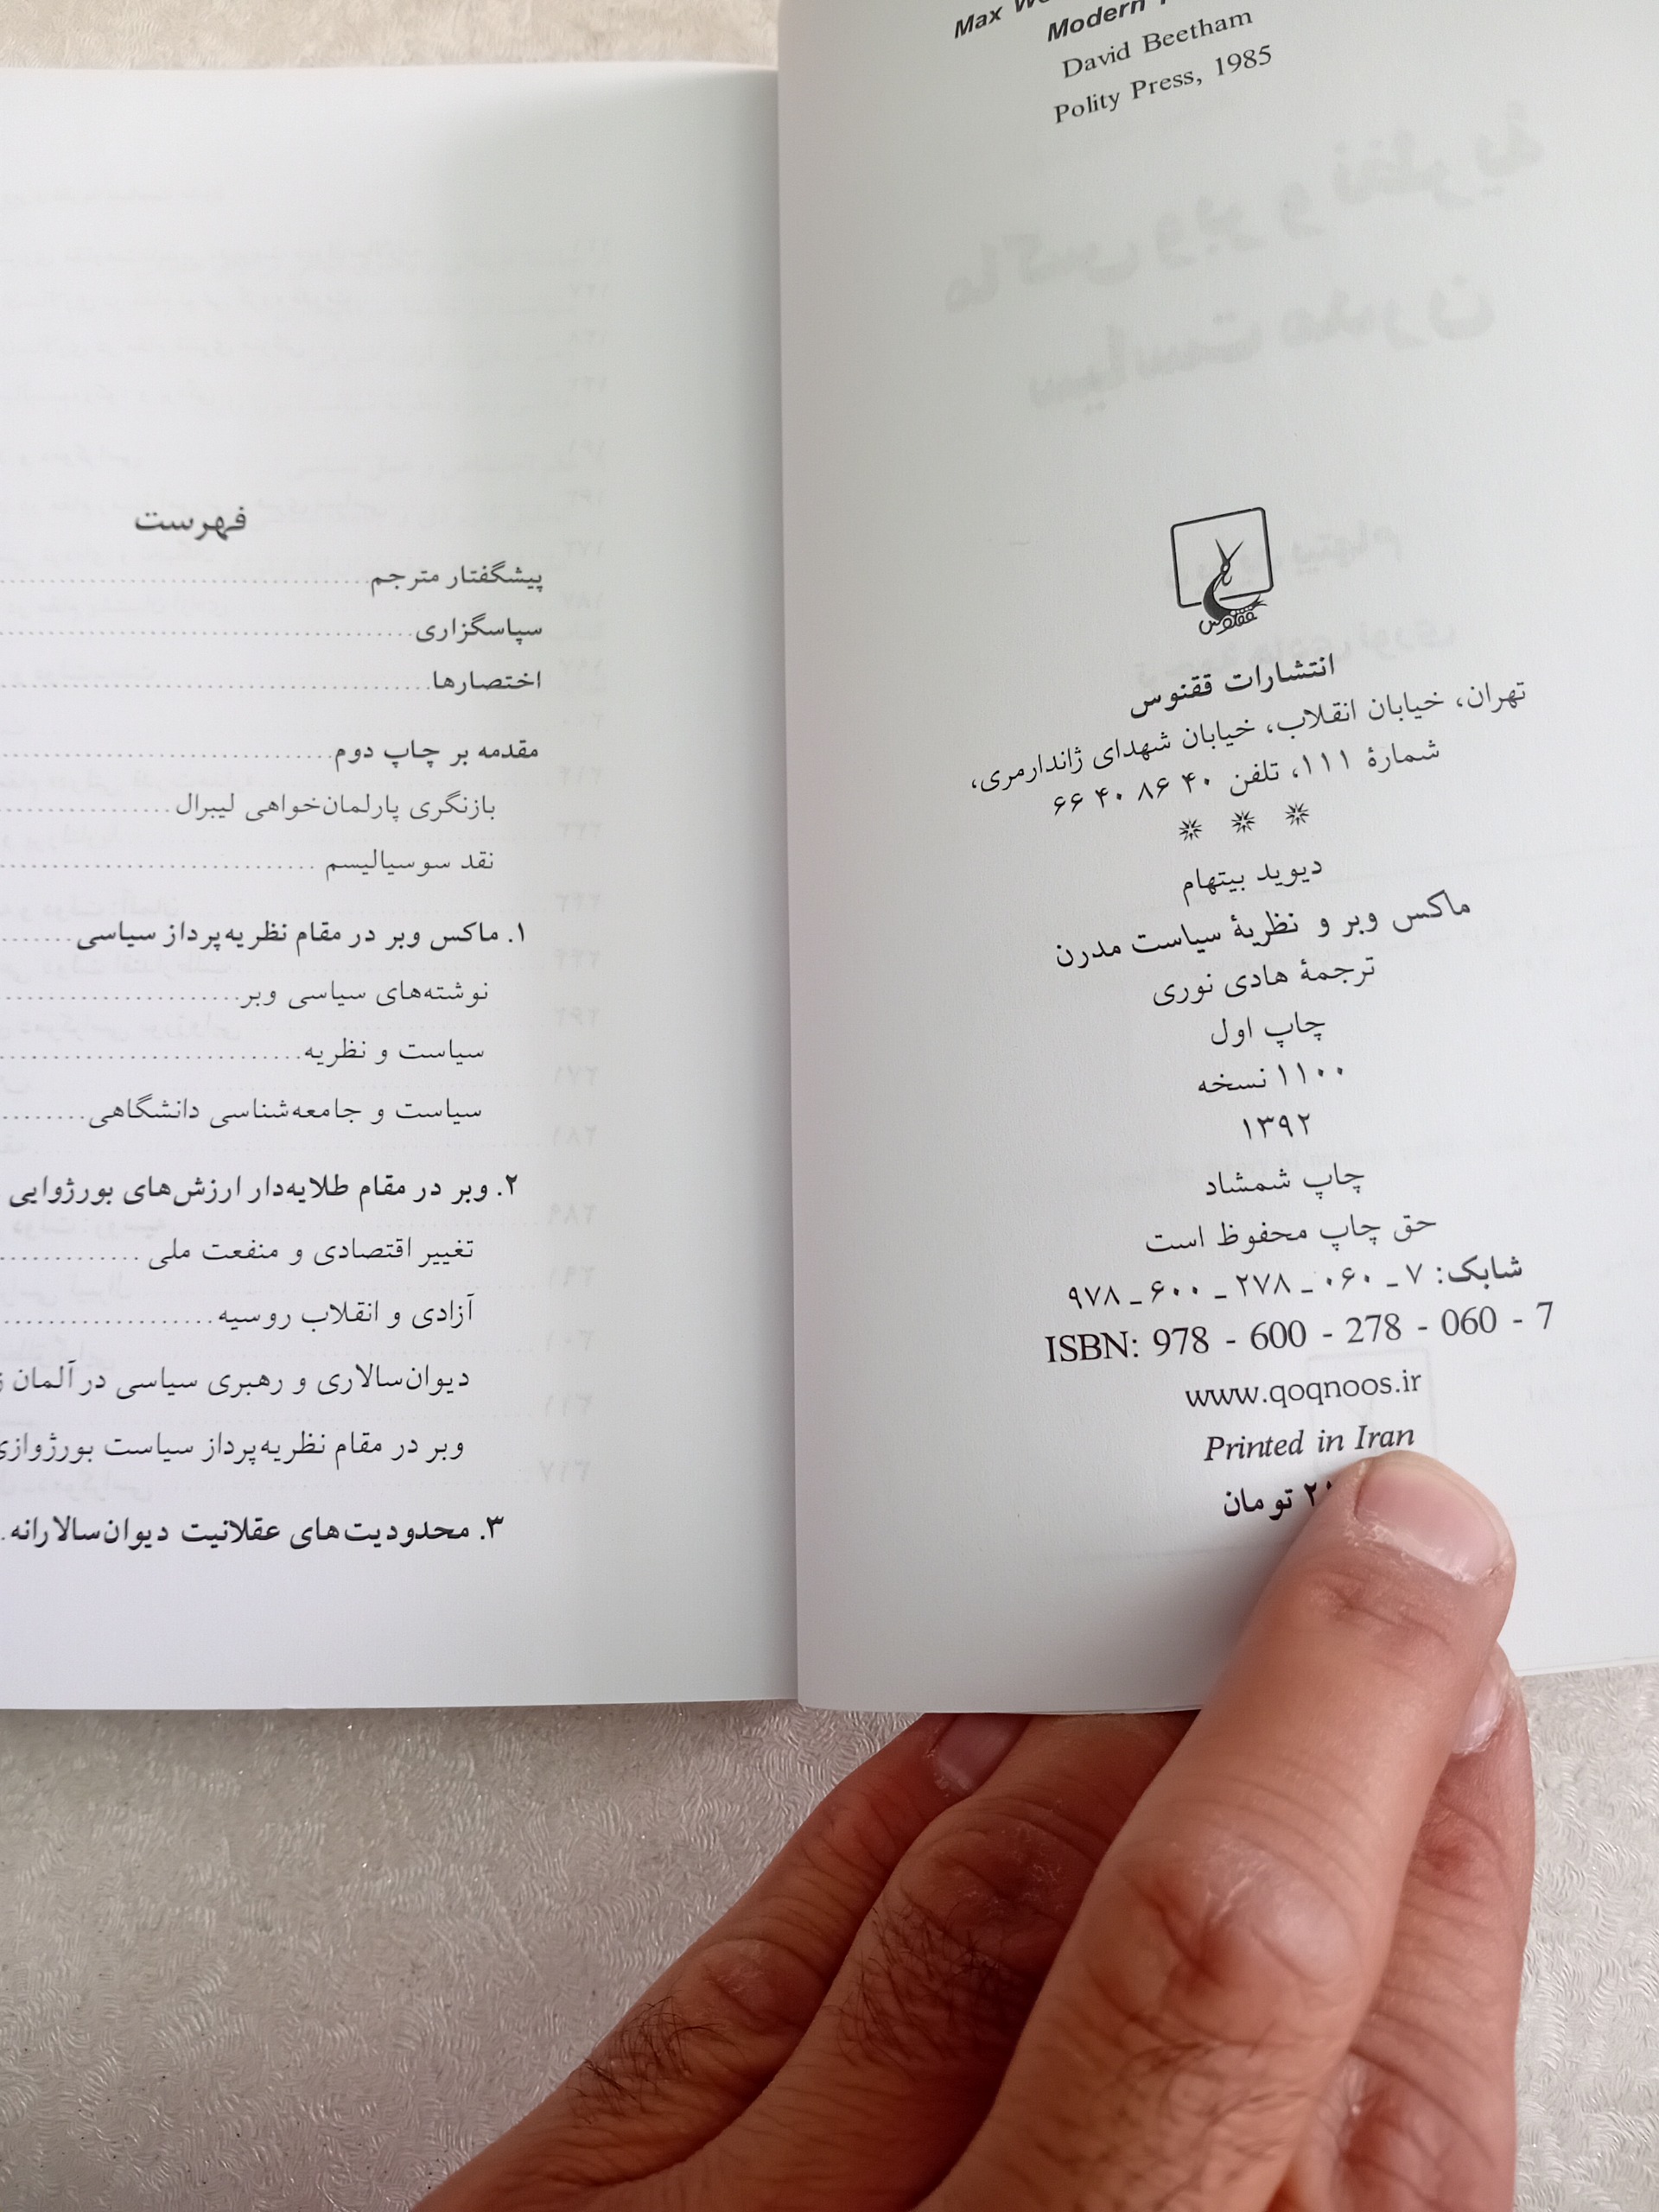 Max
Modern
David Beetham
Polity Press, 1985
ققنوس
انتشارات ققنوس
تهران، خیابان انقلاب، خیابان شهدای ژاندارمری،
شمارهٔ ۱۱۱، تلفن ۴۰ ۸۶ ۴۰ ۶۶
دیوید بیتهام
ماکس وبر و نظریهٔ سیاست مدرن
ترجمهٔ هادی نوری
چاپ اول
۱۱۰۰ نسخه
۱۳۹۲
چاپ شمشاد
حق چاپ محفوظ است
شابک: ۷ ـ ۰۶۰ ـ ۲۷۸ ـ ۶۰۰ ـ ۹۷۸
ISBN: 978 - 600 - 278 - 060 - 7
www.qoqnoos.ir
Printed in Iran
تومان
فهرست
پیشگفتار مترجم
سپاسگزاری
اختصارها
مقدمه بر چاپ دوم
بازنگری پارلمان‌خواهی لیبرال
نقد سوسیالیسم
۱. ماکس وبر در مقام نظریه‌پرداز سیاسی
نوشته‌های سیاسی وبر
سیاست و نظریه
سیاست و جامعه‌شناسی دانشگاهی
۲. وبر در مقام طلایه‌دار ارزش‌های بورژوایی
تغییر اقتصادی و منفعت ملی
آزادی و انقلاب روسیه
دیوان‌سالاری و رهبری سیاسی در آلمان
وبر در مقام نظریه‌پرداز سیاست بورژوازی
۳. محدودیت‌های عقلانیت دیوان‌سالارانه